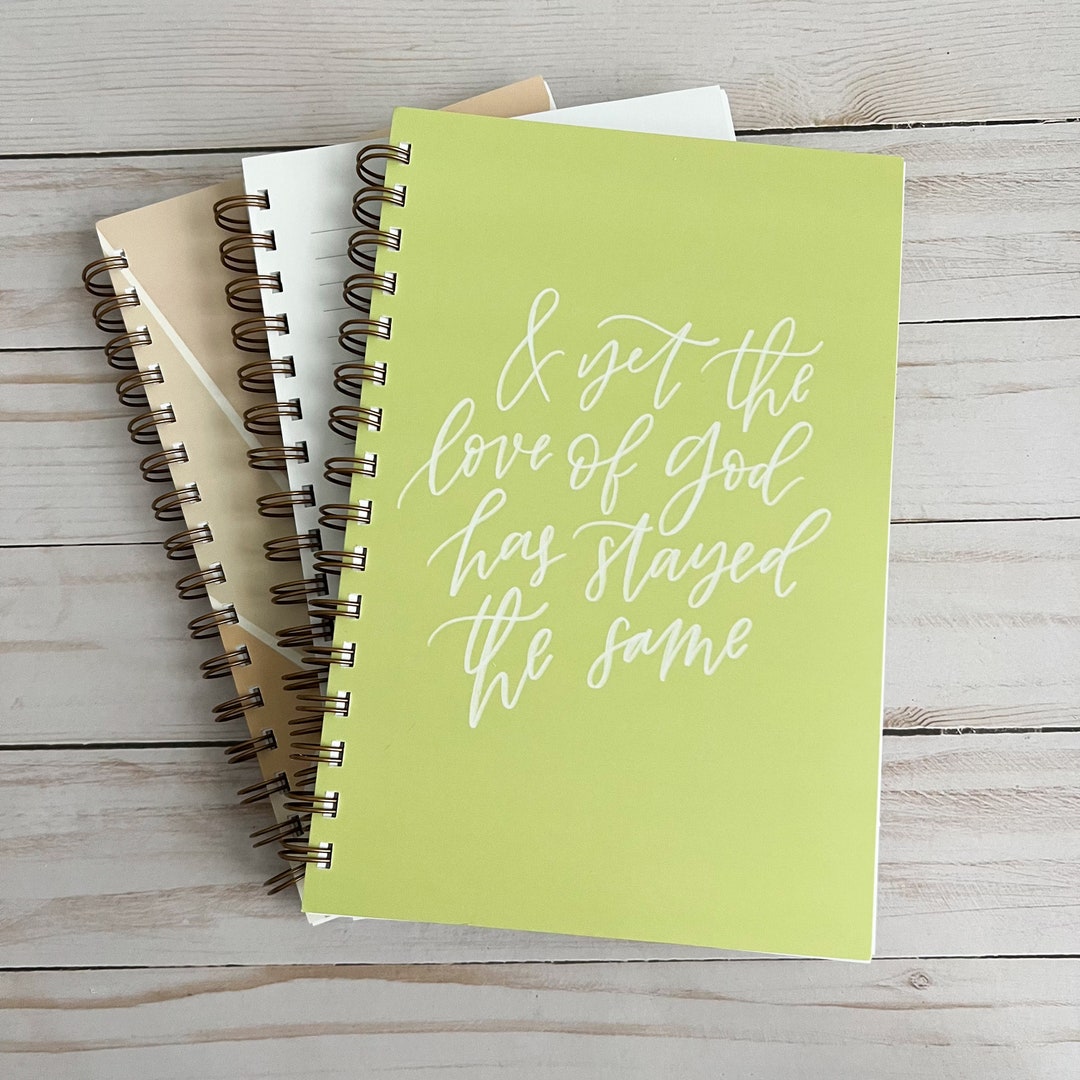 & yet the
love of God
has stayed
the same